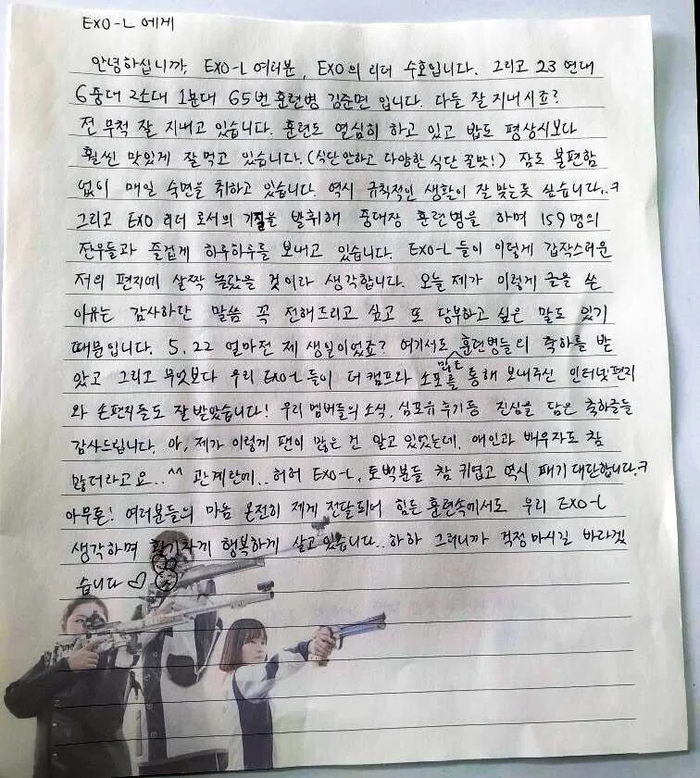 EXO-L 에게
안녕하십니까, EXO-L 여러분, EXO의 리더 수호입니다. 그리고 23연대
6중대 2소대 1분대 65번 훈련병 김준면 입니다. 다들 잘 지내시죠?
전 무척 잘 지내고 있습니다. 훈련도 열심히 하고 있고 밥도 평상시보다
훨씬 맛있게 잘 먹고 있습니다. (식단안하고 다양한 식단 꿀맛!) 잠도 불편함
없이 매일 숙면을 취하고 있습니다. 역시 규칙적인 생활이 잘 맞는듯 싶습니다..ㅋ
그리고 EXO 리더 로서의 기질을 발휘해 중대장 훈련병을 하며 159명의
전우들과 즐겁게 하루하루를 보내고 있습니다. EXO-L들이 이렇게 갑작스러운
저의 편지에 살짝 놀랐을 것이라 생각합니다. 오늘 제가 이렇게 글을 쓴
이유는 감사하단 말씀 꼭 전해드리고 싶고 또 당부하고 싶은 말도 있기
때문입니다. 5.22 얼마전 제 생일이었죠? 여기서도 훈련병들의 축하를 받
았고 그리고 무엇보다 우리 EXO-L들이 더캠프라 소포를 통해 보내주신 인터넷편지
와 손편지들도 잘 받았습니다! 우리 멤버들의 소식, 심포유 후기등 진심을 담은 축하글들
감사드립니다. 아, 제가 이렇게 팬이 많은 건 알고 있었는데, 애인과 배우자도 참
많더라고요..^^ 관계란에.. 허허 EXO-L, 토벅분들 참 귀엽고 역시 패기 대단합니다.ㅋ
아무튼! 여러분들의 마음 온전히 제게 전달되어 힘든 훈련속에서도 우리 EXO-L
생각하며 활기차게 행복하게 살고 있습니다.. 하하 그러니까 걱정 마시길 바라겠
습니다 ♡